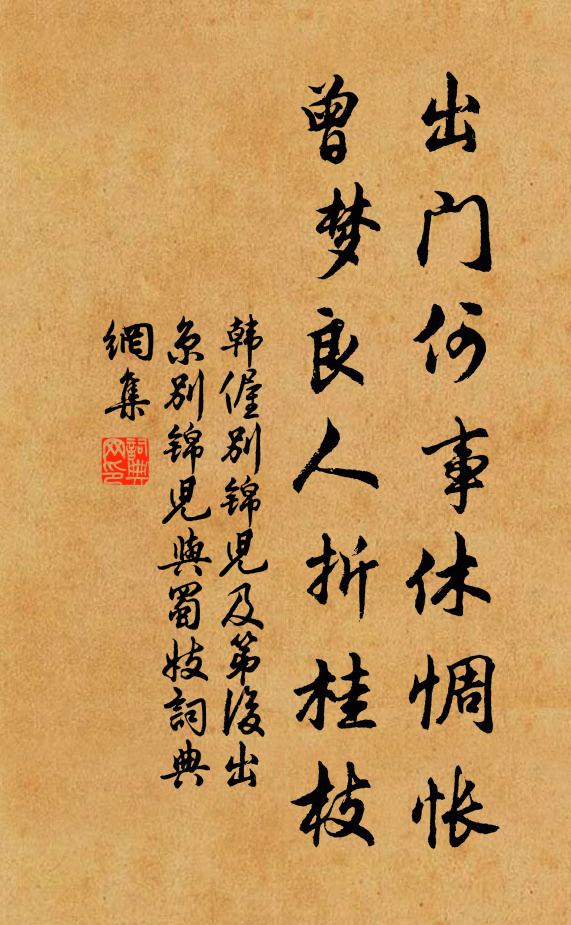 出门何事休惆怅
曾梦良人折桂枝
韩偓别锦儿及第後出
京别锦児與蜀妓詞典
網集
詞典网印